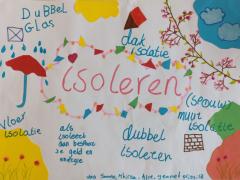 DUBBEL
GLAS
dak
isolatie
isoleren
(SPOUW)
muur
isolatie
Vloer
isolatie
als
isoleert
dan bespaar
je geld en
energie
dubbel
isoleren
door